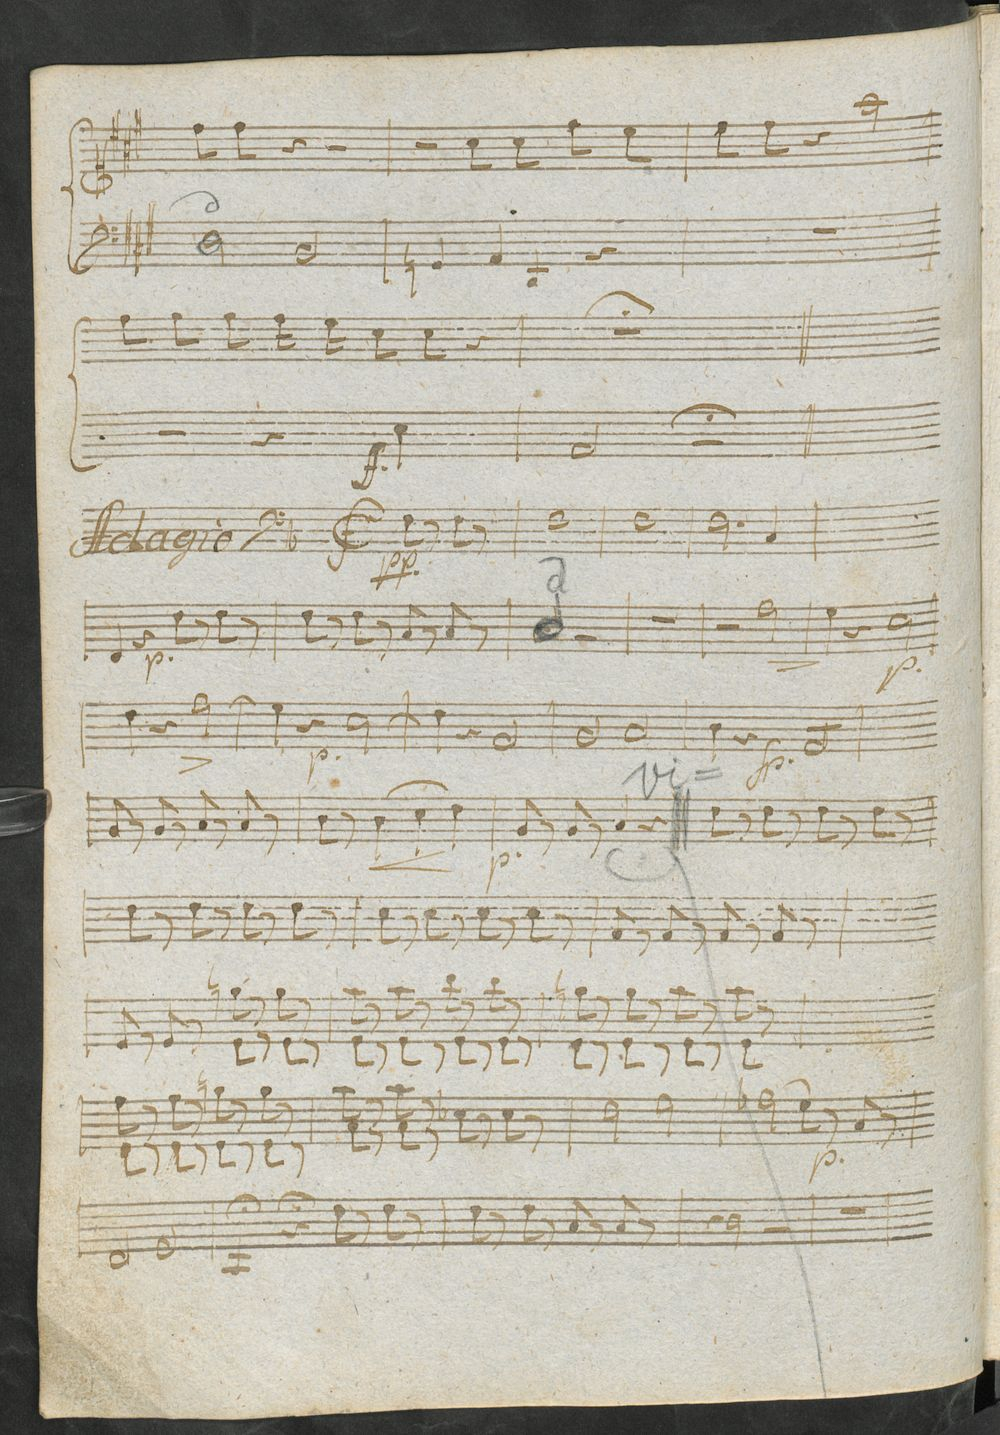 f.
Adagio
pp.
d
p.
p.
p.
fp.
vi=
p.
p.